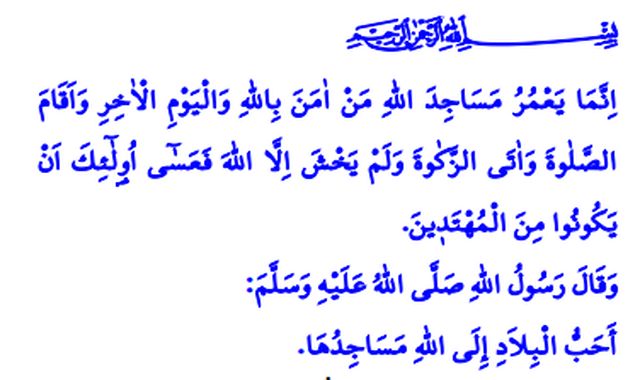 بِسْمِ اللهِ الرَّحْمٰنِ الرَّحِيمِ
اِنَّمَا يَعْمُرُ مَسَاجِدَ اللهِ مَنْ اٰمَنَ بِاللهِ وَالْيَوْمِ الْاٰخِرِ وَاَقَامَ
الصَّلٰوةَ وَاٰتَى الزَّكٰوةَ وَلَمْ يَخْشَ اِلَّا اللهَ فَعَسٰٓى اُو۬لٰٓئِكَ اَنْ
يَكُونُوا مِنَ الْمُهْتَد۪ينَ.
وَقَالَ رَسُولُ اللهِ صَلَّى اللهُ عَلَيْهِ وَسَلَّمَ:
أَحَبُّ الْبِلاَدِ إِلَى اللهِ مَسَاجِدُهَا.